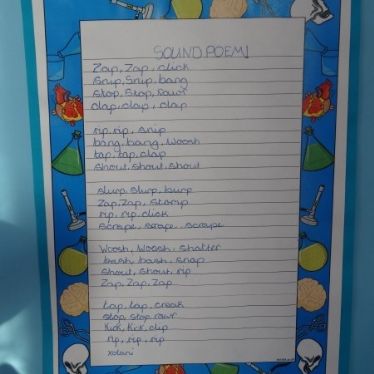 SOUND POEM!
Zap, Zap, click
Snip, Snip, bang
Stop, Stop, rawr
clap, clap, clap
rip, rip, snip
bang, bang, woosh
tap, tap, clap
Shout, Shout, Shout
Slurp, Slurp, burp
Zap, Zap, Stomp
rip, rip, click
Scrape, Scrape, Scrape
Woosh, Woosh, Shatter
bash, bash, snap
Shout, Shout, rip
Zap, Zap, Zap
tap, tap, creak
Stop, Stop, rawr
Kick, Kick, clip
rip, rip, rip
Xolani